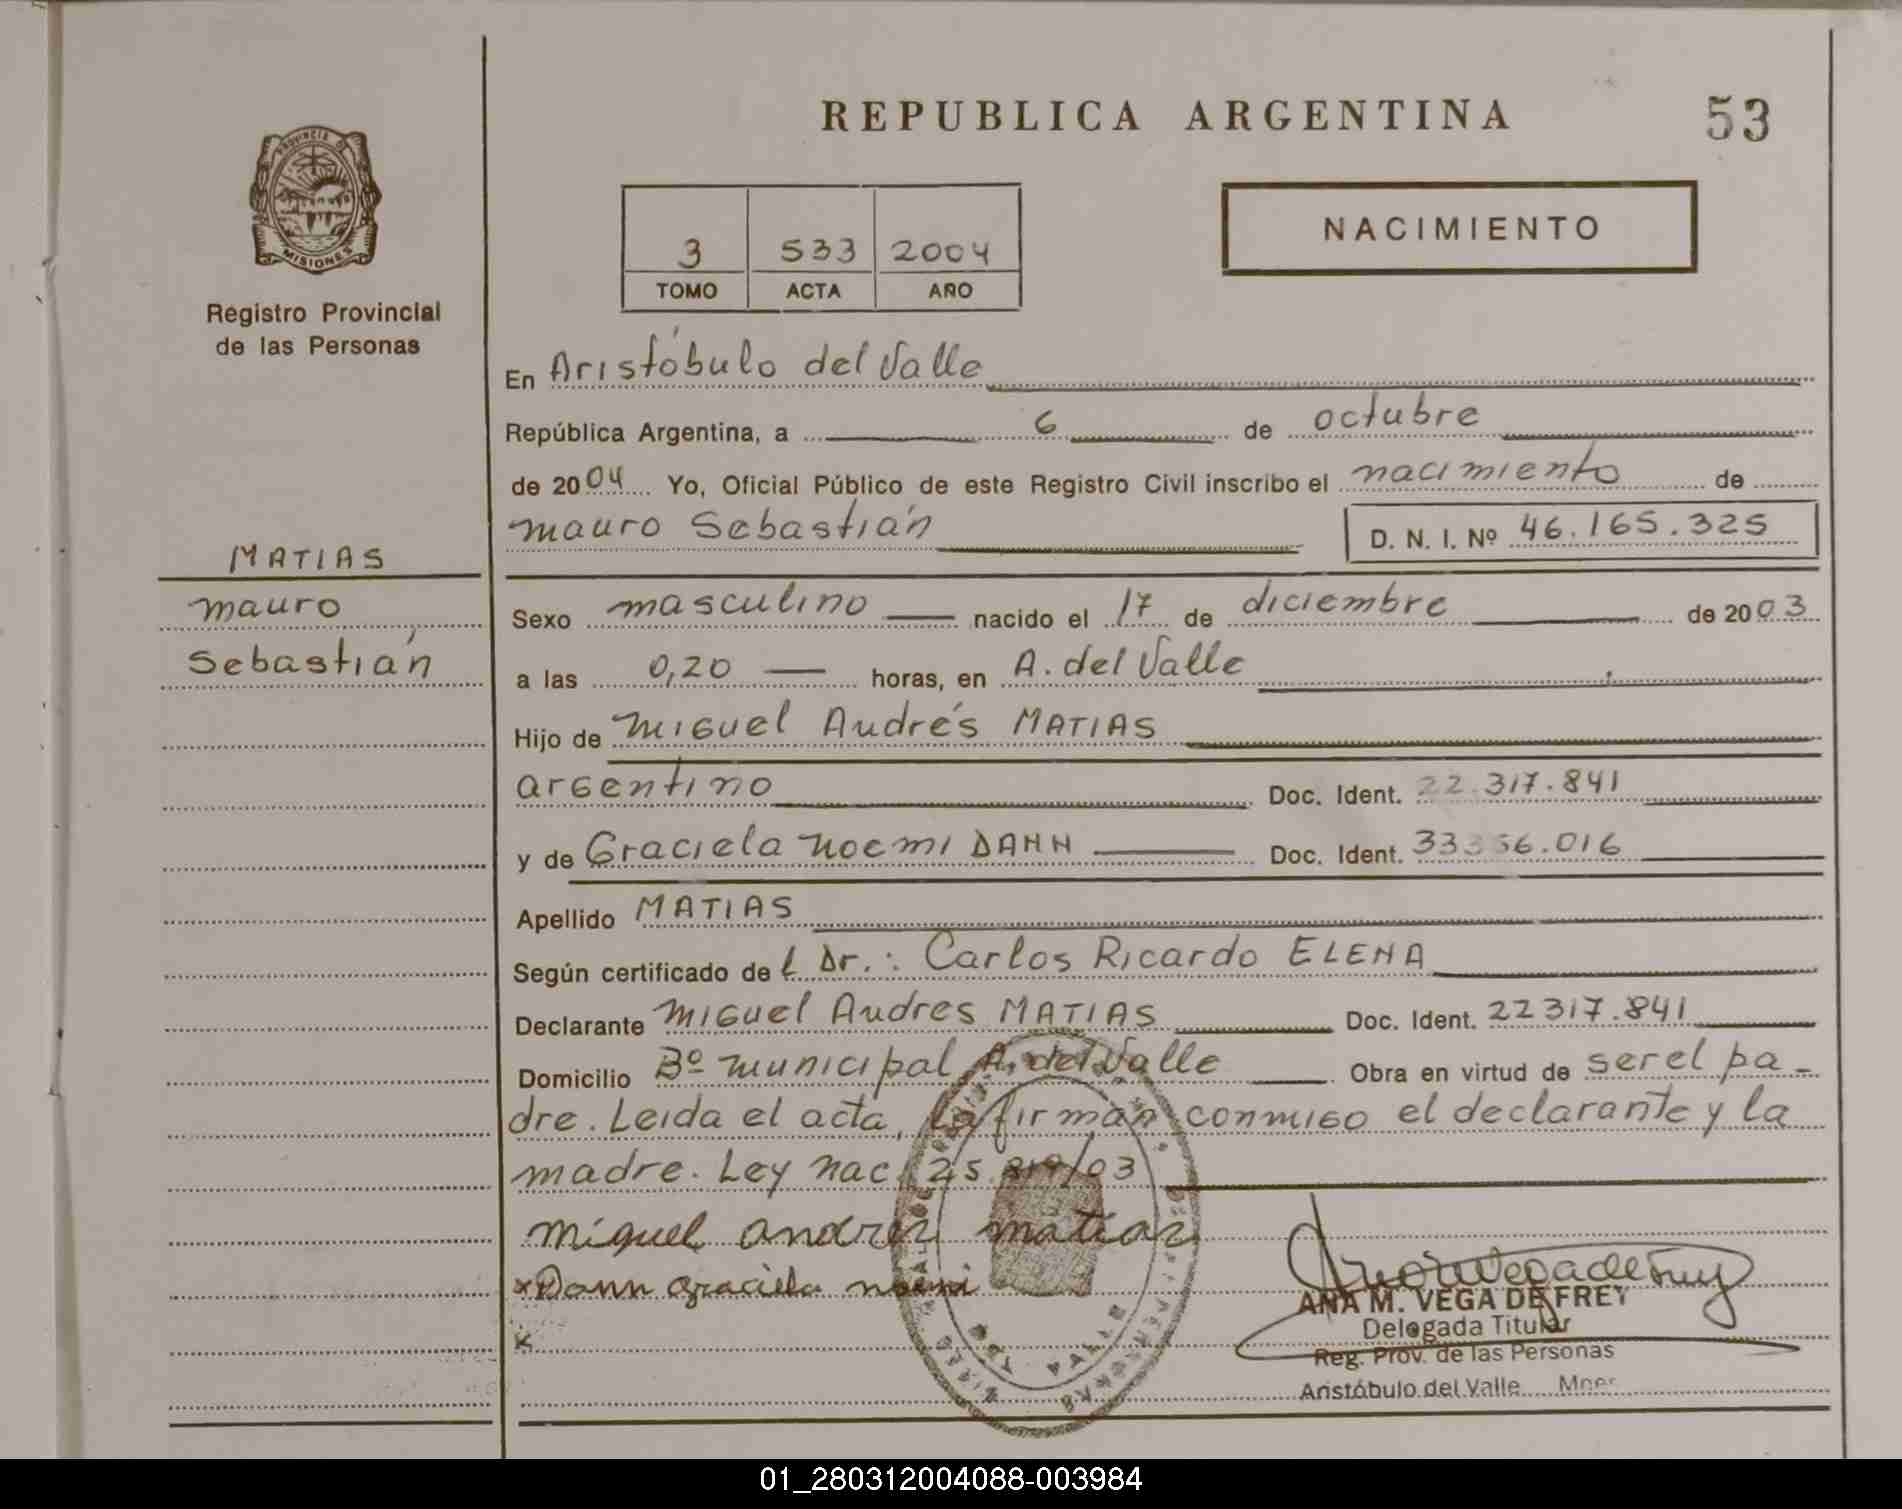 REPUBLICA ARGENTINA
53
PROVINCIA DE
MISIONES
Registro Provincial
de las Personas
3 533 2004
TOMO ACTA AÑO
NACIMIENTO
En Aristóbulo del Valle
República Argentina, a 6 de octubre
de 2004 Yo, Oficial Público de este Registro Civil inscribo el nacimiento de
mauro Sebastián D. N. I. Nº 46.165.325
MATIAS
mauro
Sebastián
Sexo masculino nacido el 17 de diciembre de 2003
a las 0,20 horas, en A. del Valle
Hijo de Miguel Andrés MATIAS
argentino Doc. Ident. 22.317.841
y de Graciela Noemi DANN Doc. Ident. 33.356.016
Apellido MATIAS
Según certificado del Dr.: Carlos Ricardo ELENA
Declarante Miguel Andres MATIAS Doc. Ident. 22317.841
Domicilio Bº Municipal A. del Valle Obra en virtud de ser el pa-
dre. Leida el acta, la firman conmigo el declarante y la
madre. Ley Nac. 25.819/03
miguel andres matias
x Dann graciela noemi
x
ANA M. VEGA DE FREY
Delegada Titular
Reg. Prov. de las Personas
Aristóbulo del Valle Mnes.
01_280312004088-003984